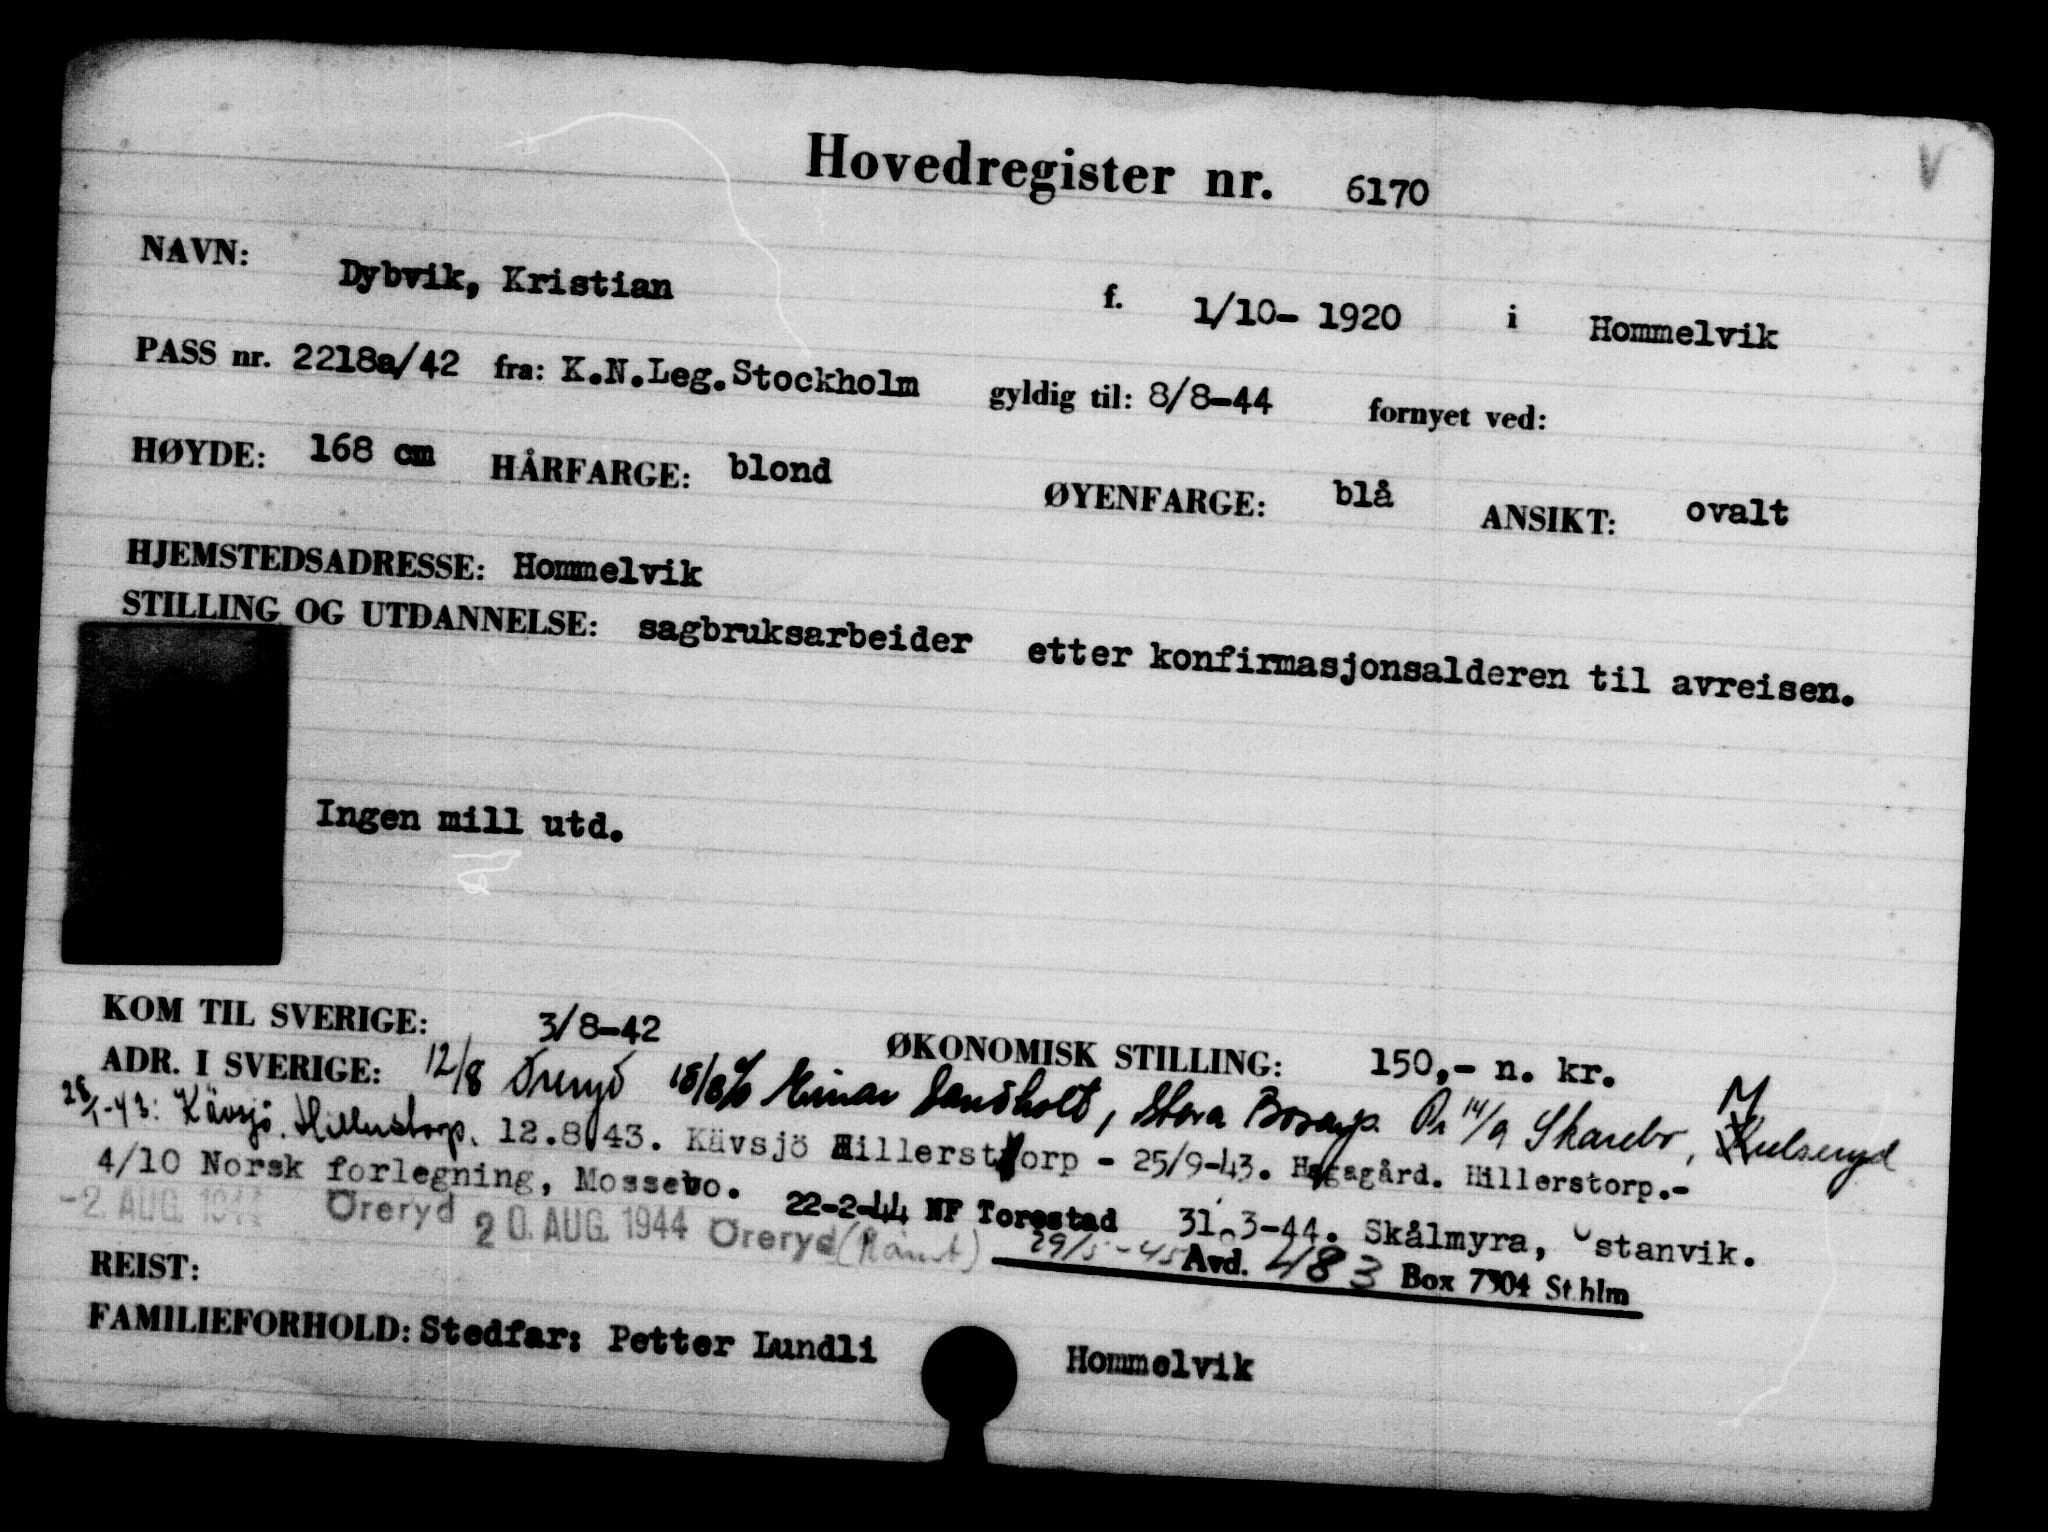 Hovedregister nr. 6170
V
NAVN: Dybvik, Kristian f. 1/10- 1920 i Hommelvik
PASS nr. 2218a/42 fra: K.N.Leg.Stockholm gyldig til: 8/8-44 fornyet ved:
HØYDE: 168 cm HÅRFARGE: blond ØYENFARGE: blå ANSIKT: ovalt
HJEMSTEDSADRESSE: Hommelvik
STILLING OG UTDANNELSE: sagbruksarbeider etter konfirmasjonsalderen til avreisen.
Ingen mill utd.
KOM TIL SVERIGE: 3/8-42 ØKONOMISK STILLING: 150,- n. kr.
ADR. I SVERIGE: 12/8 Öreryd 18/8 c/o Einar Sandholt, Stora Bosarp. 14/9 Skarebo,
Kävsjö, Hillerstorp. 12.8.43. Kävsjö Hillerstorp - 25/9-43. Hagagård. Hillerstorp.-
4/10 Norsk forlegning, Mossebo. 22-2-44 NF Torestad 31.3-44. Skålmyra, stanvik.
-2. AUG. 1944 Öreryd 20. AUG. 1944 Öreryd 29/5-45 Avd. 483 Box 7304 Sthlm
REIST:
FAMILIEFORHOLD: Stedfar: Petter Lundli Hommelvik